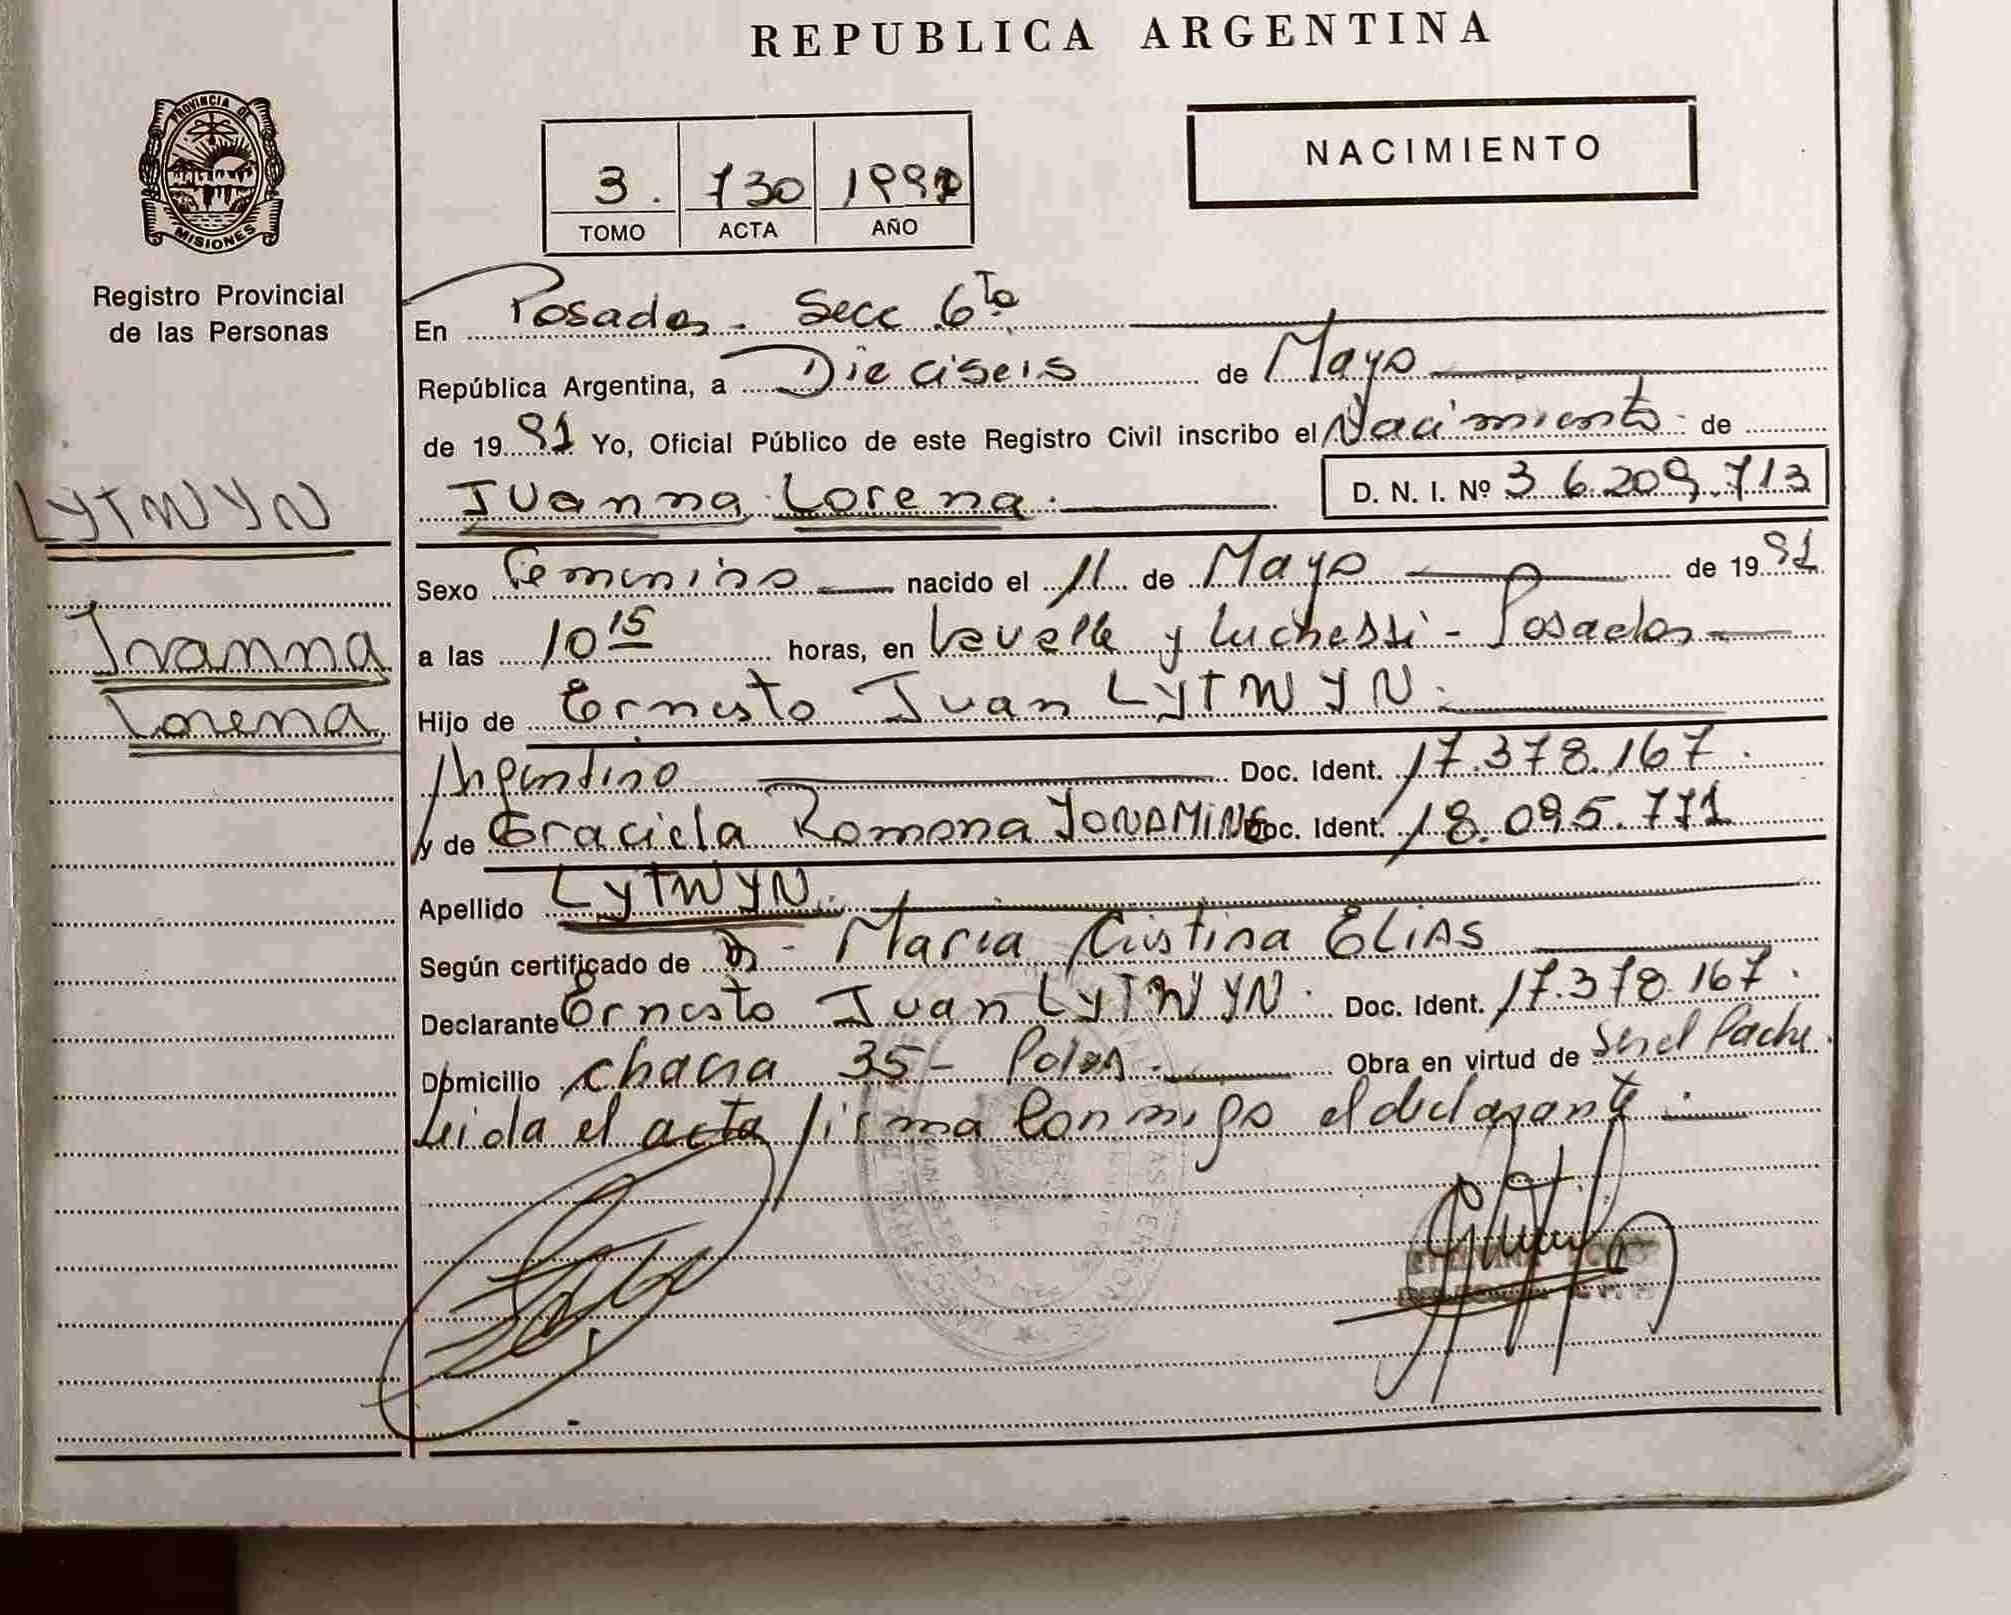 REPUBLICA ARGENTINA
PROVINCIA DE
MISIONES
Registro Provincial
de las Personas
NACIMIENTO
3. 730 1991
TOMO ACTA AÑO
En Posadas - Secc 6ta
República Argentina, a Dieciseis de Mayo
de 1991 Yo, Oficial Público de este Registro Civil inscribo el Nacimiento de
Ivanna Lorena. D. N. I. Nº 36.209.713
LYTWYN
Ivanna
Lorena
Sexo Femenino nacido el 11 de Mayo de 1991
a las 10 15 horas, en Lavalle y Luchessi - Posadas
Hijo de Ernesto Juan LYTWYN.
Argentino Doc. Ident. 17.378.167.
y de Graciela Ramona YONAMINE Doc. Ident. 18.095.771
Apellido LYTWYN.
Según certificado de - Maria Cristina ELIAS
Declarante Ernesto Juan LYTWYN. Doc. Ident. 17.378.167.
Domicilio chacra 35 - Pdas. Obra en virtud de Ser el Padre.
Leida el acta firma conmigo el declarante.